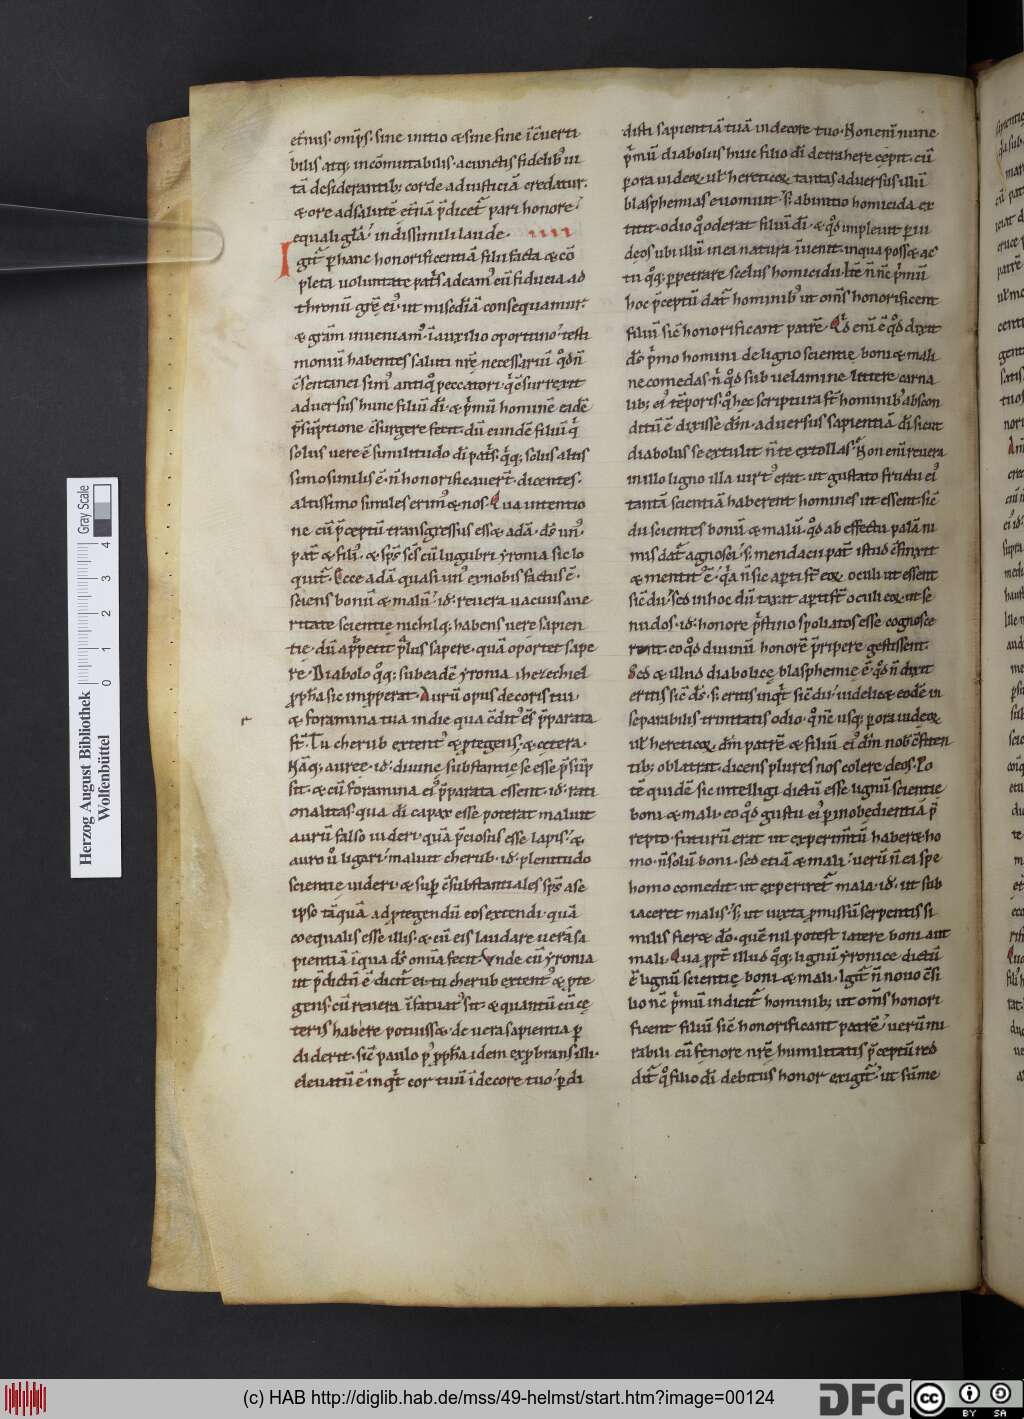 et̄nus · om̄ps · sine initio & sine fine īc̄uerti
bilis atq; incōmutabilis · a cunctis fidelib᷒ ui
tā desiderantib; corde ad iusticiā creditur ·
& ore ad salutē et̄nā p̄dicet᷒ pari honore ·
equali gl̄a · indissimili laude · IIII
Igit᷒ p̱ hanc honorificentiā filii facta & cō
pleta uoluntate pat̄s adeam᷒ cū fiducia ad
thronū grē ei᷒ · ut mis̄c̄diā consequamur ·
& grām inueniam᷒ · ī auxilio oportuno · testi
moniū habentes saluti nr̄e necessariū qd̄ n̄
c̄sentanei sim᷒ antiq̊ peccatori · q̄ c̄surrexit
aduersus hunc filiū dī · & p̄mū hominē eadē
p̄sūptione c̄surgere fecit · dū eundē filiū q̄
solus uere ē similitudo dī pat̄s · q̄q; solus altis
simo similis ē · n̄ honorificauer̄t · dicentes ·
altissimo similes erim᷒ & nos · Qua intentio
ne · cū p̄ceptū transgressus ess& adā · ds̄ un᷒ ·
pat̄ & fili᷒ · & sp̄s sc̄s cū lugubri yronia sic lo
quit᷒ · Ecce adā quasi un᷒ ex nobis factus ē ·
sciens bonū & malū · id · reuera uacuus a ue
ritate scientie nichilq; habens uere sapien
tie · dū appetit pl̄us sapere · quā oportet sape
re · Diabolo q̊q; sub eadē yronia ihezechiel
p̱pħa sic imp̱perat · Aurū opus decoris tui ·
& foramina tua in die qua c̄dit᷒ es p̄parata
st̄ · Tu cherub extent᷒ & p̱tegens · & cetera ·
Nāq; auree · id · diuine substantie se esse p̄sūp
sit · & cū foramina ei᷒ p̄parata essent · id · rati
onalitas · qua dī capax esse poterat maluit
aurū falso uideri · quā p̄ciosus esse lapis · &
auro ů ligari · maluit cherub · id · plenitudo
scientie uideri · & sup̱ c̄substantiales sp̄s a se
ipso tāquā ad p̱tegendū eos extendi · quā
coequalis esse illis · & cū eis laudare uerā sa
pientiā ī qua ds̄ om̄ia fecit · Vnde cū yronia
ut p̄dictū ē dicit᷒ ei · tu cherub extent᷒ & p̱te
gens · cū reuera īfatuat᷒ sit · & quantū cū cę
teris habere potuiss& · de uera sapientia p̱
diderit · sic̄ paulo p᷒ p̱pħa idem exp̱brans illi ·
eleuatū ē inq̄t cor tuū ī decore tuo · p̱di
disti sapientiā tuā in decore tuo · Non enī nunc
p̄mū diabolus huic filio dī detrahere cepit · cū
p̱ ora iudeoꝝ · ul̄ hereticoꝝ tantas aduersus illū
blasphemias euomuit · s; ab initio homicida ex
titit · odio q̊ oderat filiū dī · & qd̄ impleuit p̱ iu
deos ubi illū in ea natura īuenit · in qua poss& · ac
tu q̊q; p̱petrare scelus homicidii · Itē n̄ nc̄ p̄mū
hoc p̄ceptū dat᷒ hominib᷒ ut om̄s honorificent
filiū sic̄ honorificant patrē · Qd̄ enī ē qd̄ dixit
ds̄ p̄mo homini de ligno scientię boni & mali
ne comedas · n̄ qd̄ sub uelamine littere carna
lib; ei᷒ tēporis · q̊ hec scriptura st̄ hominib᷒ abscon
ditū ē dixisse dn̄m · aduersus sapientiā dī sicut
diabolus se extulit n̄ te extollas · Non enī reuera
in illo ligno illa uirt᷒ erat · ut gustato fructu ei᷒
tantā scientiā haberent homines ut essent sic̄
dii scientes bonū & malū · qd̄ ab effectu palā ni
mis dat᷒ agnosci · s; mendacii pat̄ istud c̄finxit
& mentit᷒ ē · q̄a n̄ sic aperti st̄ eoꝝ oculi ut essent
sic̄ dii · sed in hoc dū taxat ap̱ti st̄ oculi eoꝝ · ut se
nudos · id · honore p̄stino spoliatos esse cognosce
rent · eo qd̄ diuinū honorē p̄ripere gestissent ·
Sed & illud diabolicę blasphemie ē · qd̄ n̄ dixit
eritis sic̄ ds̄ · s; eritis inq̄t sic̄ dii · uidelic& eodē in
separabilis trinitatis odio · q̊ nc̄ usq; p̱ ora iudeoꝝ
ul̄ hereticoꝝ · dn̄m patrē & filiū ei᷒ dn̄m nob̄ c̄fiten
tib; oblatrat · dicens plures nos colere deos · Po
tē quidē sic intelligi dictū esse lignū scientie
boni & mali · eo qd̄ gustu ei᷒ p̱ inobedientiā p̄
repto · futurū erat ut experim̄tū haber& ho
mo · n̄ solū boni · sed etiā & mali · uerū n̄ ea spe
homo comedit · ut experiret᷒ mala · id · ut sub
iaceret malis · s; ut iuxta p̱missū serpentis si
milis fier& dō · quē nil potest latere boni aut
mali · Qua p̱pt̄ illud q̊q; lignū yronice dictū
ē lignū scientię boni & mali · Igit᷒ n̄ nouo c̄si
lio nc̄ p̄mū indicit᷒ hominib; ut om̄s honori
ficent filiū sic̄ honorificant patrē · uerū mi
rabili cū fenore nr̄e humilitatis p̄ceptū red
dit᷒ q̊ filio dī debitus honor exigit᷒ · ut sūme
Herzog August Bibliothek
Wolfenbüttel
0 1 2 3 4
Gray Scale
(c) HAB http://diglib.hab.de/mss/49-helmst/start.htm?image=00124
DFG
cc
BY SA